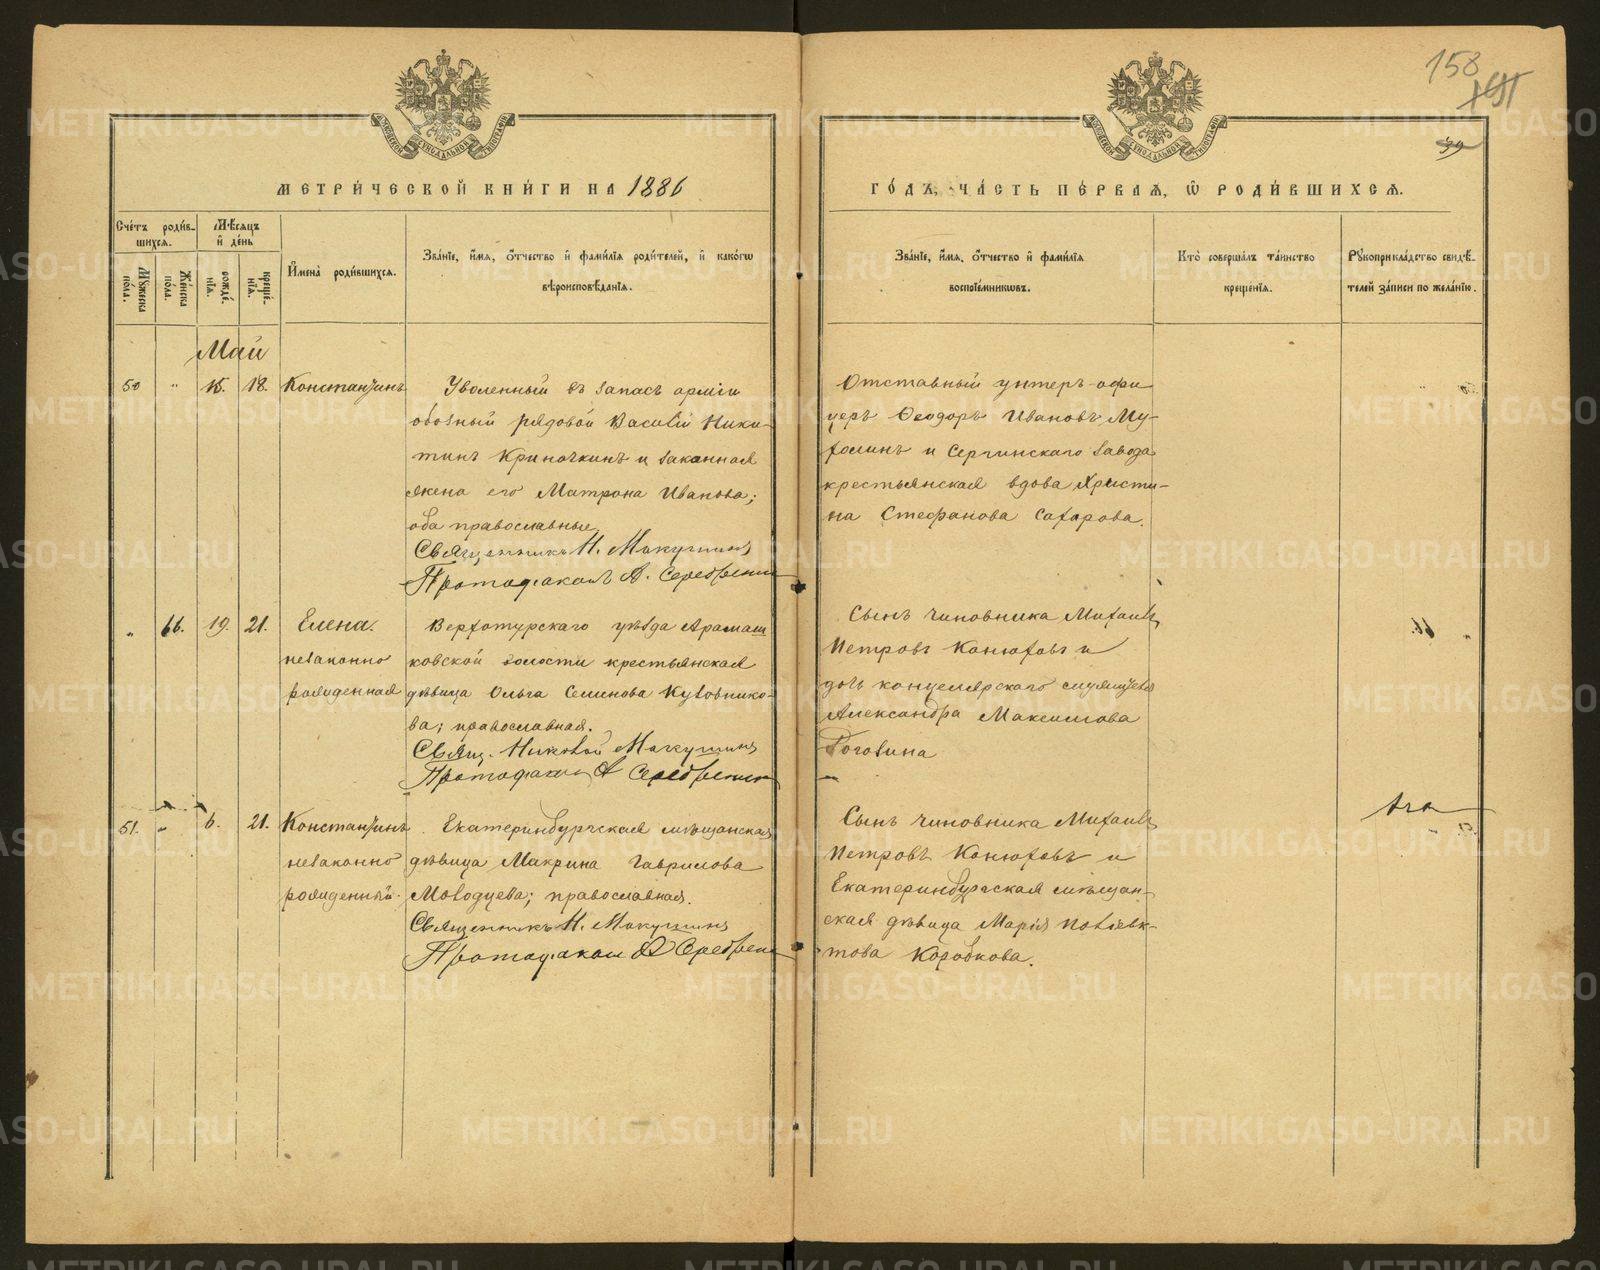 158
39
МЕТРИ́ЧЕСКОЙ КНИ́ГИ НА 1886
ГО́ДЪ, ЧА́СТЬ ПЕ́РВАЯ, Ѿ РОДИ́ВШИХСЯ.
Сче́тъ роди́в-
шихся.
Мѣ́сяцъ
и де́нь
Му́жеска
по́ла.
Же́нска
по́ла.
рожде́-
нія.
креще́-
нія.
И́мена роди́вшихся.
Зва́ніе, и́мя, о́тчество и фами́лія роди́телей, и како́гѡ
вѣроисповѣ́данія.
Зва́ніе, и́мя, о́тчество и фами́лія
воспріе́мникѡвъ.
Кто̀ соверша́лъ та́инство
креще́нія.
Рꙋкоприкла́дство свидѣ́-
телей за́писи по жела́нію.
Май
50 " 15. 18. Константинъ
Уволенный въ запасъ арміи
обозный рядовой Василій Ники-
тинъ Криночкинъ и законная
жена его Матрона Иванова;
оба православные.
Священникъ Н. Макушинъ
Протодіаконъ А. Серебрени
Отставный унтеръ-офи
церъ Ѳеодоръ Ивановъ Му-
и Сергинскаго завода
крестьянская вдова Христи-
на Стефанова Сахарова.
" 66. 19. 21. Елена.
незаконно
рожденная
Верхотурскаго уѣзда Арамаш
ковской волости крестьянская
дѣвица Ольга Семенова Кутовнико-
ва; православная.
Свящ. Николай Макушинъ
Протодіаконъ А Серебрени
Сынъ чиновника Михаилъ
Петровъ Конюховъ и
дочь канцелярскаго служителя
Александра Максимова
Роговина
66.
51. " 6. 21. Константинъ
незаконно
рожденный.
Екатеринбургская мѣщанская
дѣвица Макрина Гаврилова
Молодцева; православная.
Священникъ Н. Макушинъ
Протодіаконъ А Серебрени
Сынъ чиновника Михаилъ
Петровъ Конюховъ и
Екатеринбургская мѣщан-
ская дѣвица Марія Поліевк-
това Коробкова.
METRIKI.GASO-URAL.RU